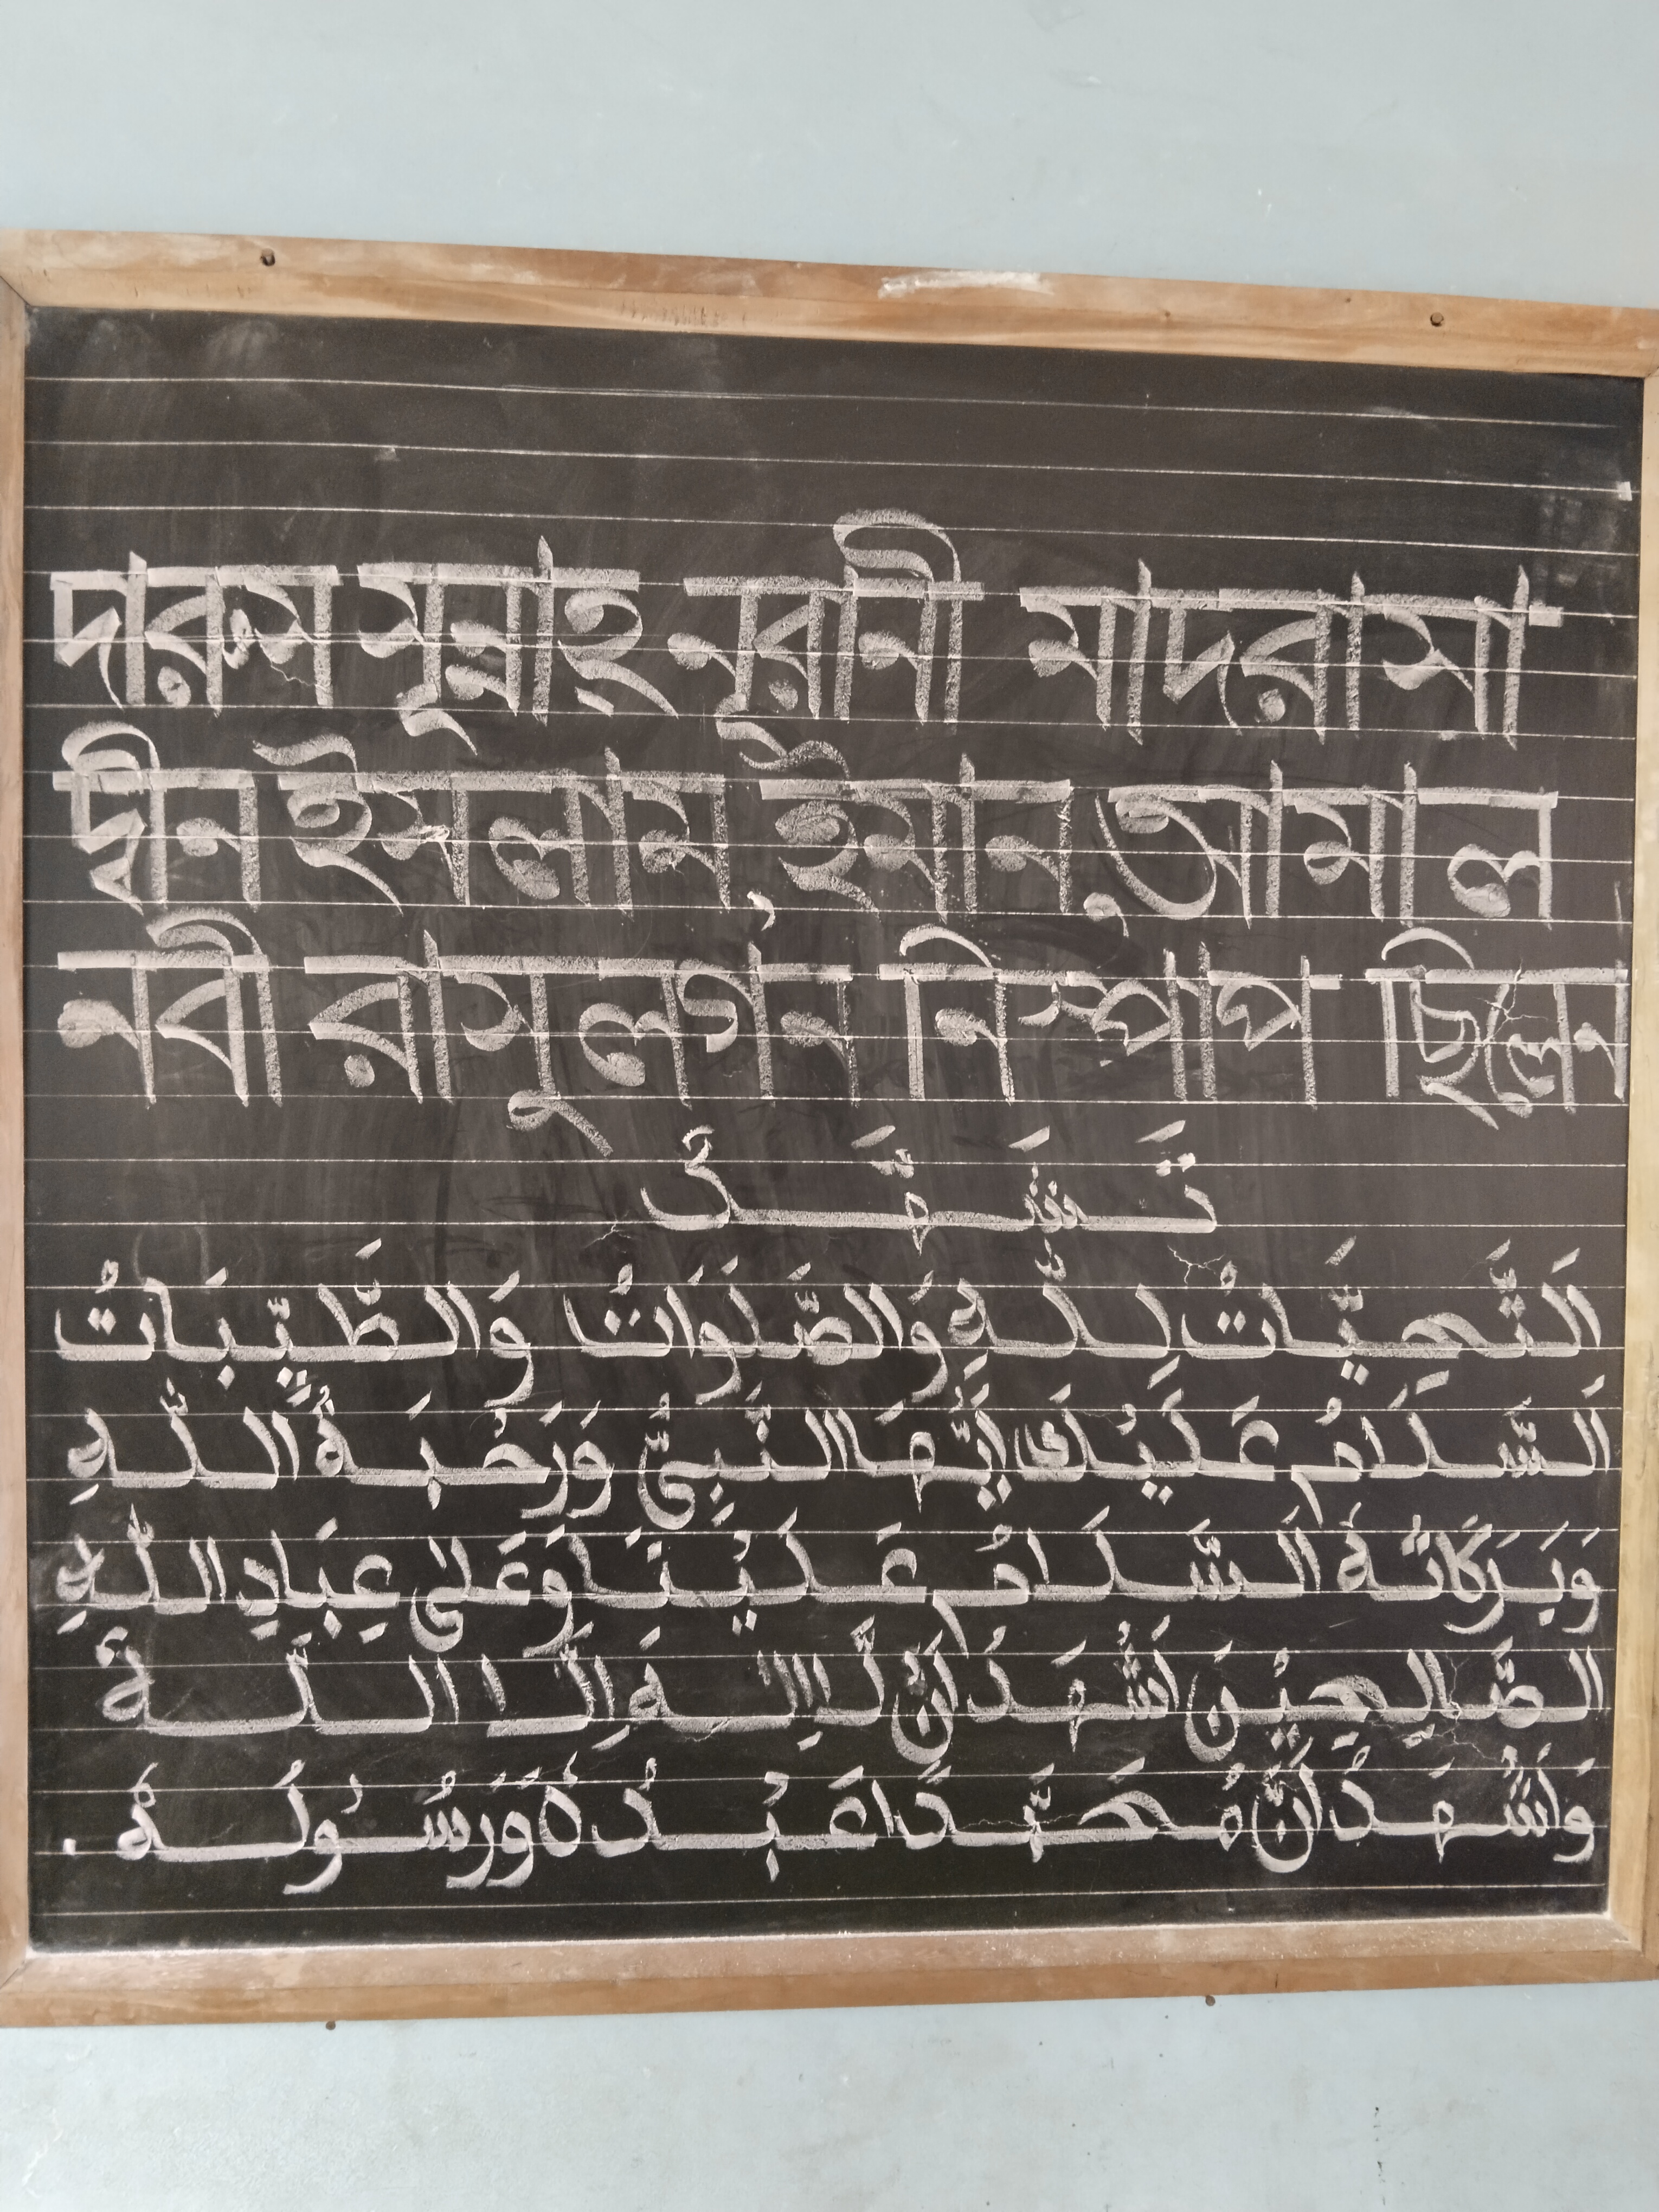 দারুস সুন্নাহ নূরানী মাদরাসা
দ্বীন ইসলাম, ঈমান, আমাল
নবী রাসুলগন নিস্পাপ ছিলেন
تَشَهُّدْ
اَلتَّحِيَّاتُ لِلّٰهِ وَالصَّلَوَاتُ وَالطَّيِّبَاتُ
اَلسَّلَامُ عَلَيْكَ اَيُّهَا النَّبِيُّ وَرَحْمَةُ اللّٰهِ
وَبَرَكَاتُهٗ اَلسَّلَامُ عَلَيْنَا وَعَلٰى عِبَادِ اللّٰهِ
الصَّالِحِيْنَ اَشْهَدُ اَنْ لَّا اِلٰهَ اِلَّا اللّٰهُ
وَاَشْهَدُ اَنَّ مُحَمَّدًا عَبْدُهٗ وَرَسُوْلُهٗ .